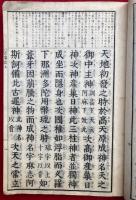 天地初發之時於高天原成神名天之
御中主神次高御產巢日
神次神產巢日神此三柱神者並獨神
成坐而隱身也次國稚如浮脂而久羅
下那洲多陀用幣琉之時如
葦牙因萌騰之物而成神名宇麻志阿
斯訶備比古遲神次天之常立